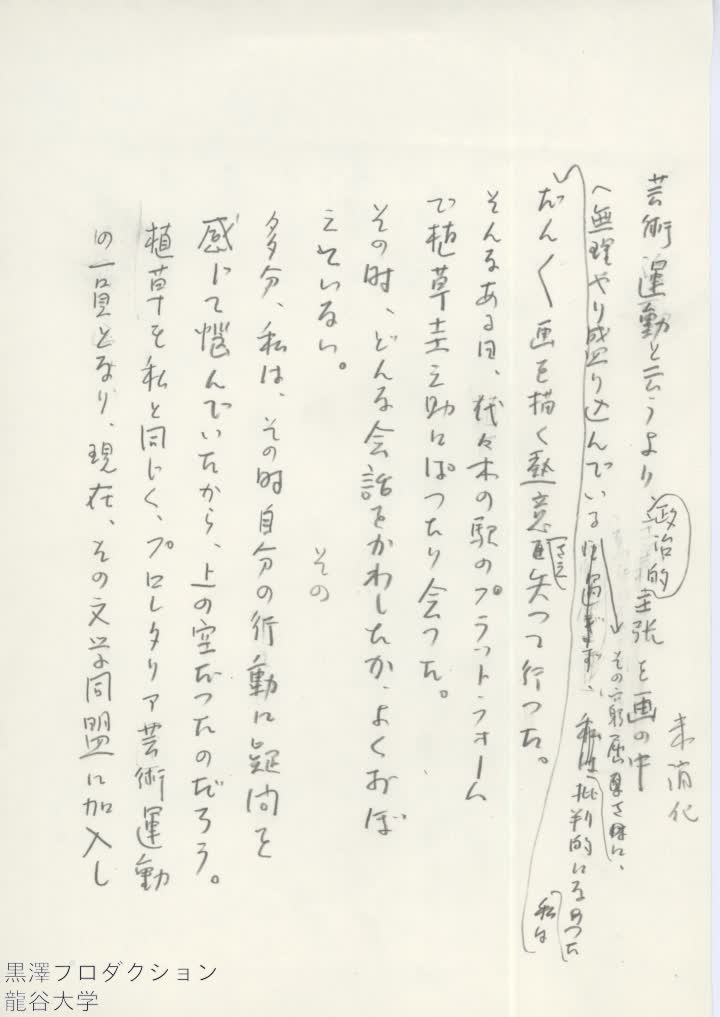 未消化
芸術運動と云うより政治的主張を画の中
へ無理やり盛り込んでいるに過ぎず、私は批判的になつた
その窮屈さに、
私は
だん〱画を描く熱意さえ失つて行つた。
そんなある日、代々木の駅のプラットフォーム
で植草圭之助にぱつたり会つた。
その時、どんな会話をかわしたか、よくおぼ
えていない。
その
多分、私は、その時自分の行動に疑問を
感じて悩んでいたから、上の空だつたのだろう。
植草も私と同じく、プロレタリア芸術運動
の一員となり、現在、その文学同盟に加入し
黒澤プロダクション
龍谷大学